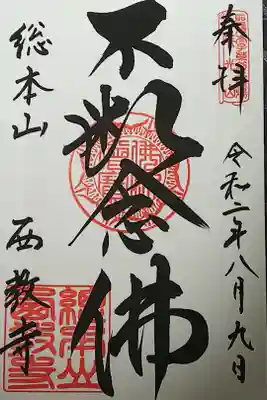 奉拝
令和二年八月九日
不断念佛
総本山
西教寺